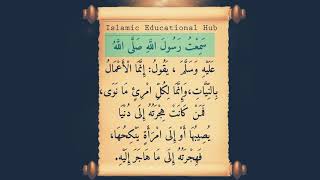 Islamic Educational Hub
سَمِعْتُ رَسُولَ اللَّهِ صَلَّى اللَّهُ
عَلَيْهِ وَسَلَّمَ ، يَقُولُ: إِنَّمَا الْأَعْمَالُ
بِالنِّيَّاتِ، وَإِنَّمَا لِكُلِّ امْرِئٍ مَا نَوَى،
فَمَنْ كَانَتْ هِجْرَتُهُ إِلَى دُنْيَا
يُصِيبُهَا أَوْ إِلَى امْرَأَةٍ يَنْكِحُهَا،
فَهِجْرَتُهُ إِلَى مَا هَاجَرَ إِلَيْهِ.